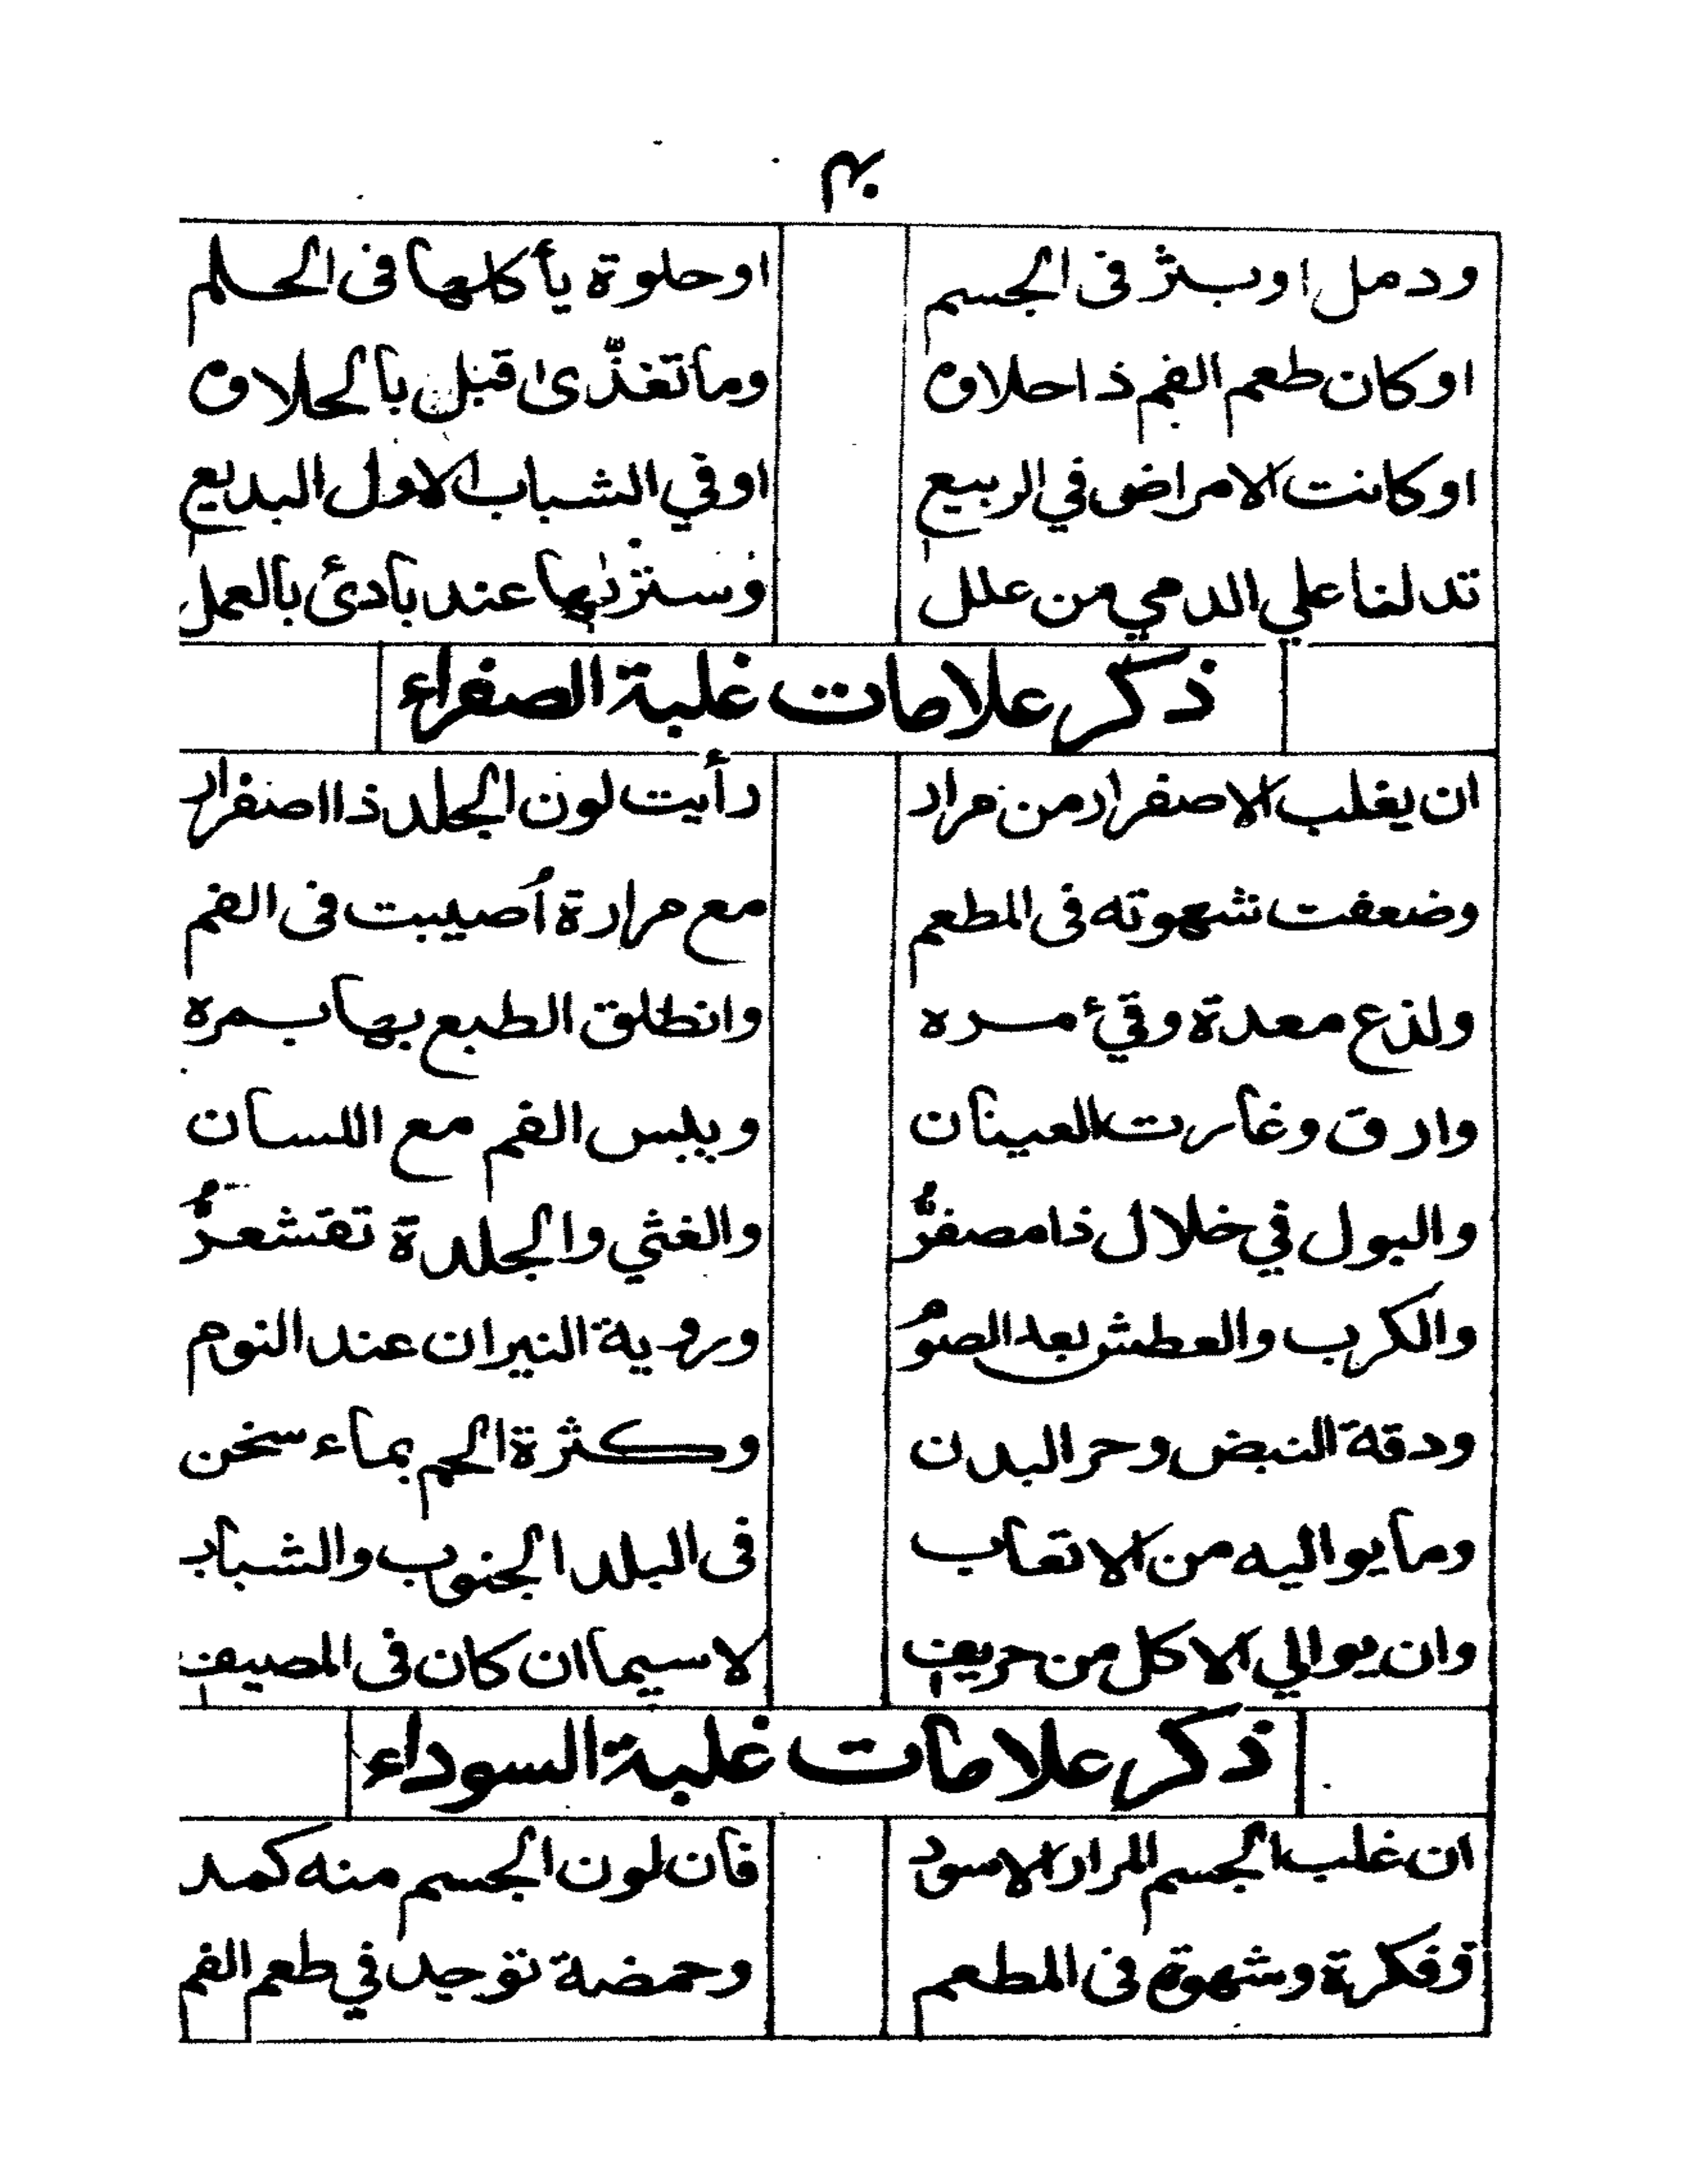 ٣٠
ودمل اوبثر فى الجسم اوحلوة يأكلها فى الحلم
اوكان طعم الفم ذاحلاوه وما تغذّى قبل بالحلاوه
اوكانت الامراض في الربيع اوفي الشباب الاول البديع
تدلنا علي الدمي من علل وسنزئها عند بادئ بالعمل
ذكر علامات غلبة الصفراء
ان يغلب الاصفرار من مرار رأيت لون الجلد ذا اصفرار
وضعفت شهوته فى المطعم مع مرارة أُصيبت فى الفم
ولذع معدة وقئ مره وانطلق الطبع بها بمره
وارق وغارت العينان ويبس الفم مع اللسان
والبول في خلال ذا مصفرُّ والغثي والجلدة تقشعرُّ
والكرب والعطش بعد الصوم وروية النيران عند النوم
ودقة النبض وحر البدن وكثرة الحم بماء سخن
وما يواليه من الاتعاب فى البلد الجنوب والشباب
وان يوالي الاكل من حريف لاسيما ان كان فى المصيف
ذكر علامات غلبة السوداء
ان غلب الجسم المرار الاسود فان لون الجسم منه كمد
وفكرة وشهوة فى المطعم وحمضة توجد في طعم الفم